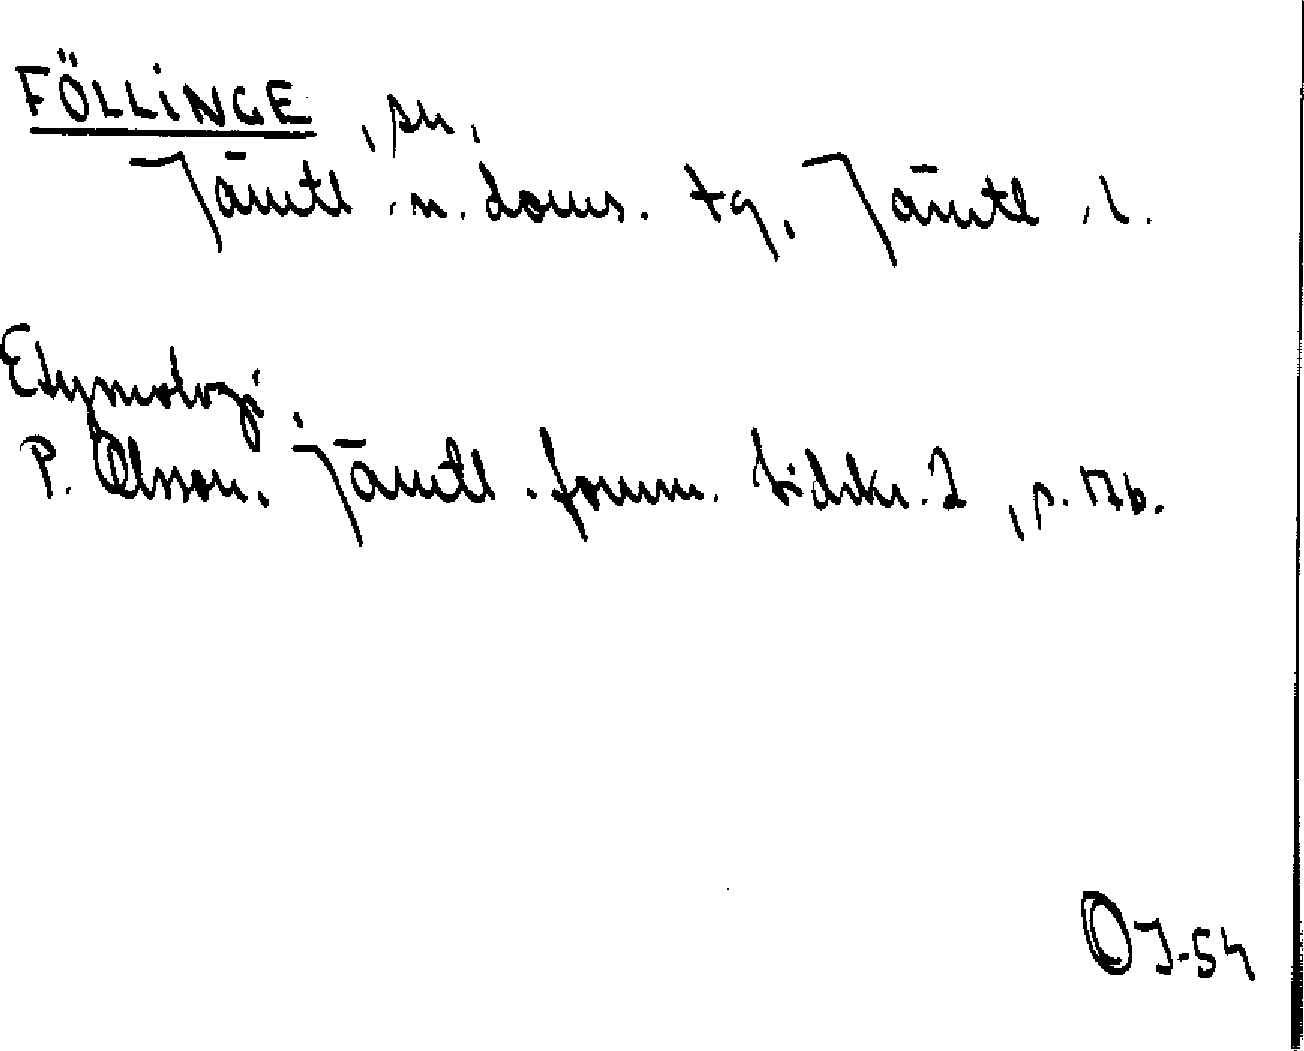 FÖLLINGE, sn,
Jämtl. n. doms. tg, Jämtl. l.
Etymologi.
P. Olsson, Jämtl. fornm. tidskr. 2, p. 176.
OJ-54